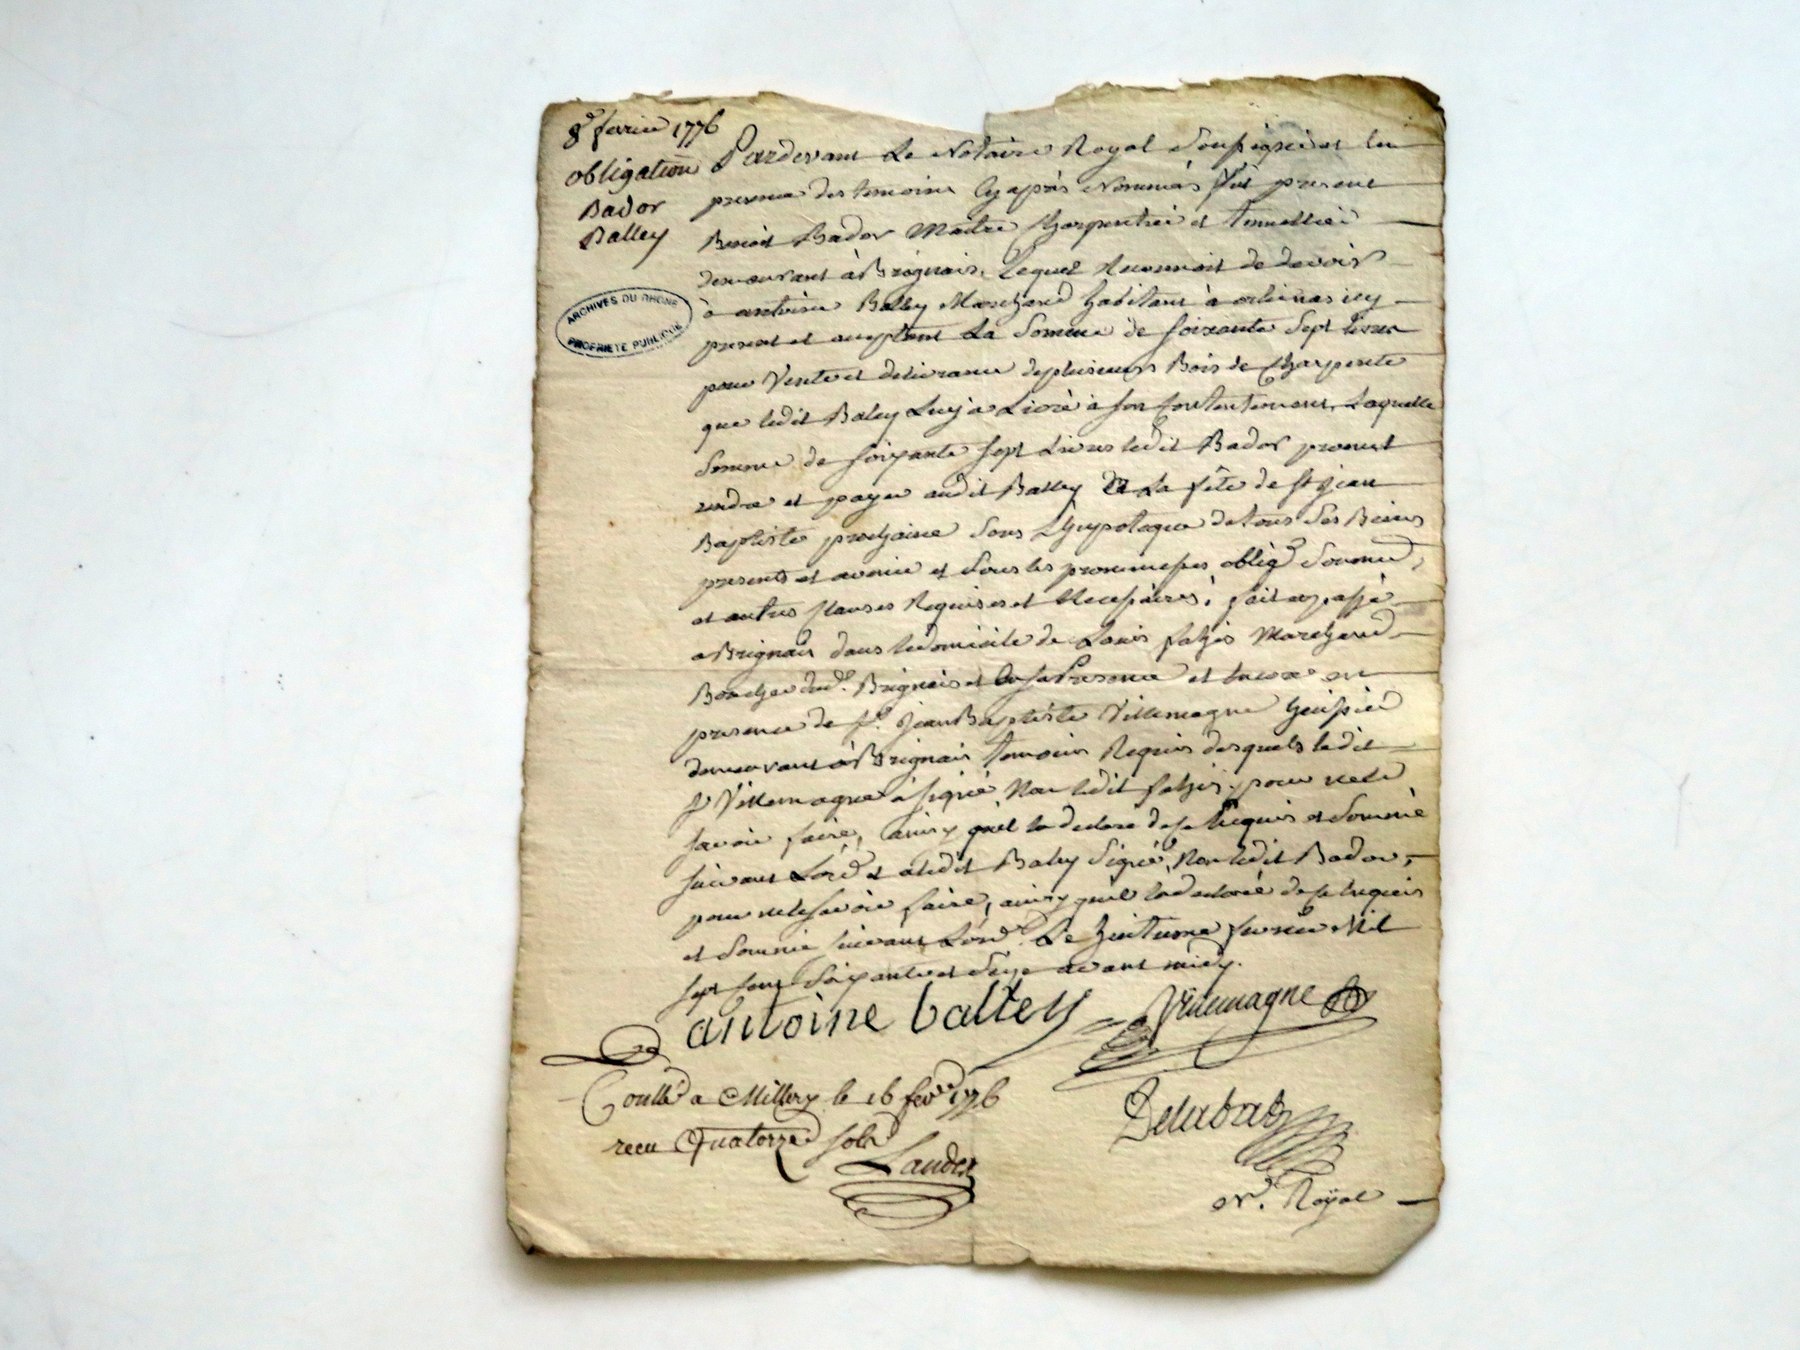 8e fevrier 1776
obligation
Bador
Balley
ARCHIVES DU RHÔNE
PROPRIÉTÉ PUBLIQUE
Pardevant Le Notaire Royal Soussigné et en
presence des temoins Cyaprès Nommés fut present
Benoit Bador Maitre Charpentier et tonnellier
demeurant à Brignais, Lequel Reconnoit de devoir
à antoine Balley Marchand habitant à orlienas icy
present et acceptant La Somme de soixante Sept livres
pour Vente et delivrance de plusieurs Bois de Charpente
que ledit Baley Luy a Livré à son Contentement, Laquelle
Somme de soixante sept Livres ledit Bador promet
rendre et payer audit Balley a La fête de st jean
Baptiste prochaine Sous L'hypoteque de tous Ses Biens
presents et avenir et Sous les promesses oblig. Soumd.
et autres Clauses Requises et Necessaires, fait et passé
a Brignais dans le domicile de Louis Marchand
Boucher dud. Brignais et en sa Presence et encore en
presence de sr. Jean Baptiste Villemagne huissier
demeurant à Brignais temoins Requis desquels ledit
sr Villemagne a signé Non ledit pour ne le
savoir faire, ainsy qu'il la declaré de ce Requis et Sommé
suivant Lord. et a ledit Baley Signé, Non ledit Bador,
pour ne le savoir faire, ainsy qu'il la declaré de ce Requis
et Sommé suivant Lord. Le huitieme fevrier Mil
sept Cent Soixante et Seize avant midy.
antoine balley Villemagne
Conllé a Millery le 16 fevr. 1776
recu Quatorze sols
Delabat
Nre. Royal